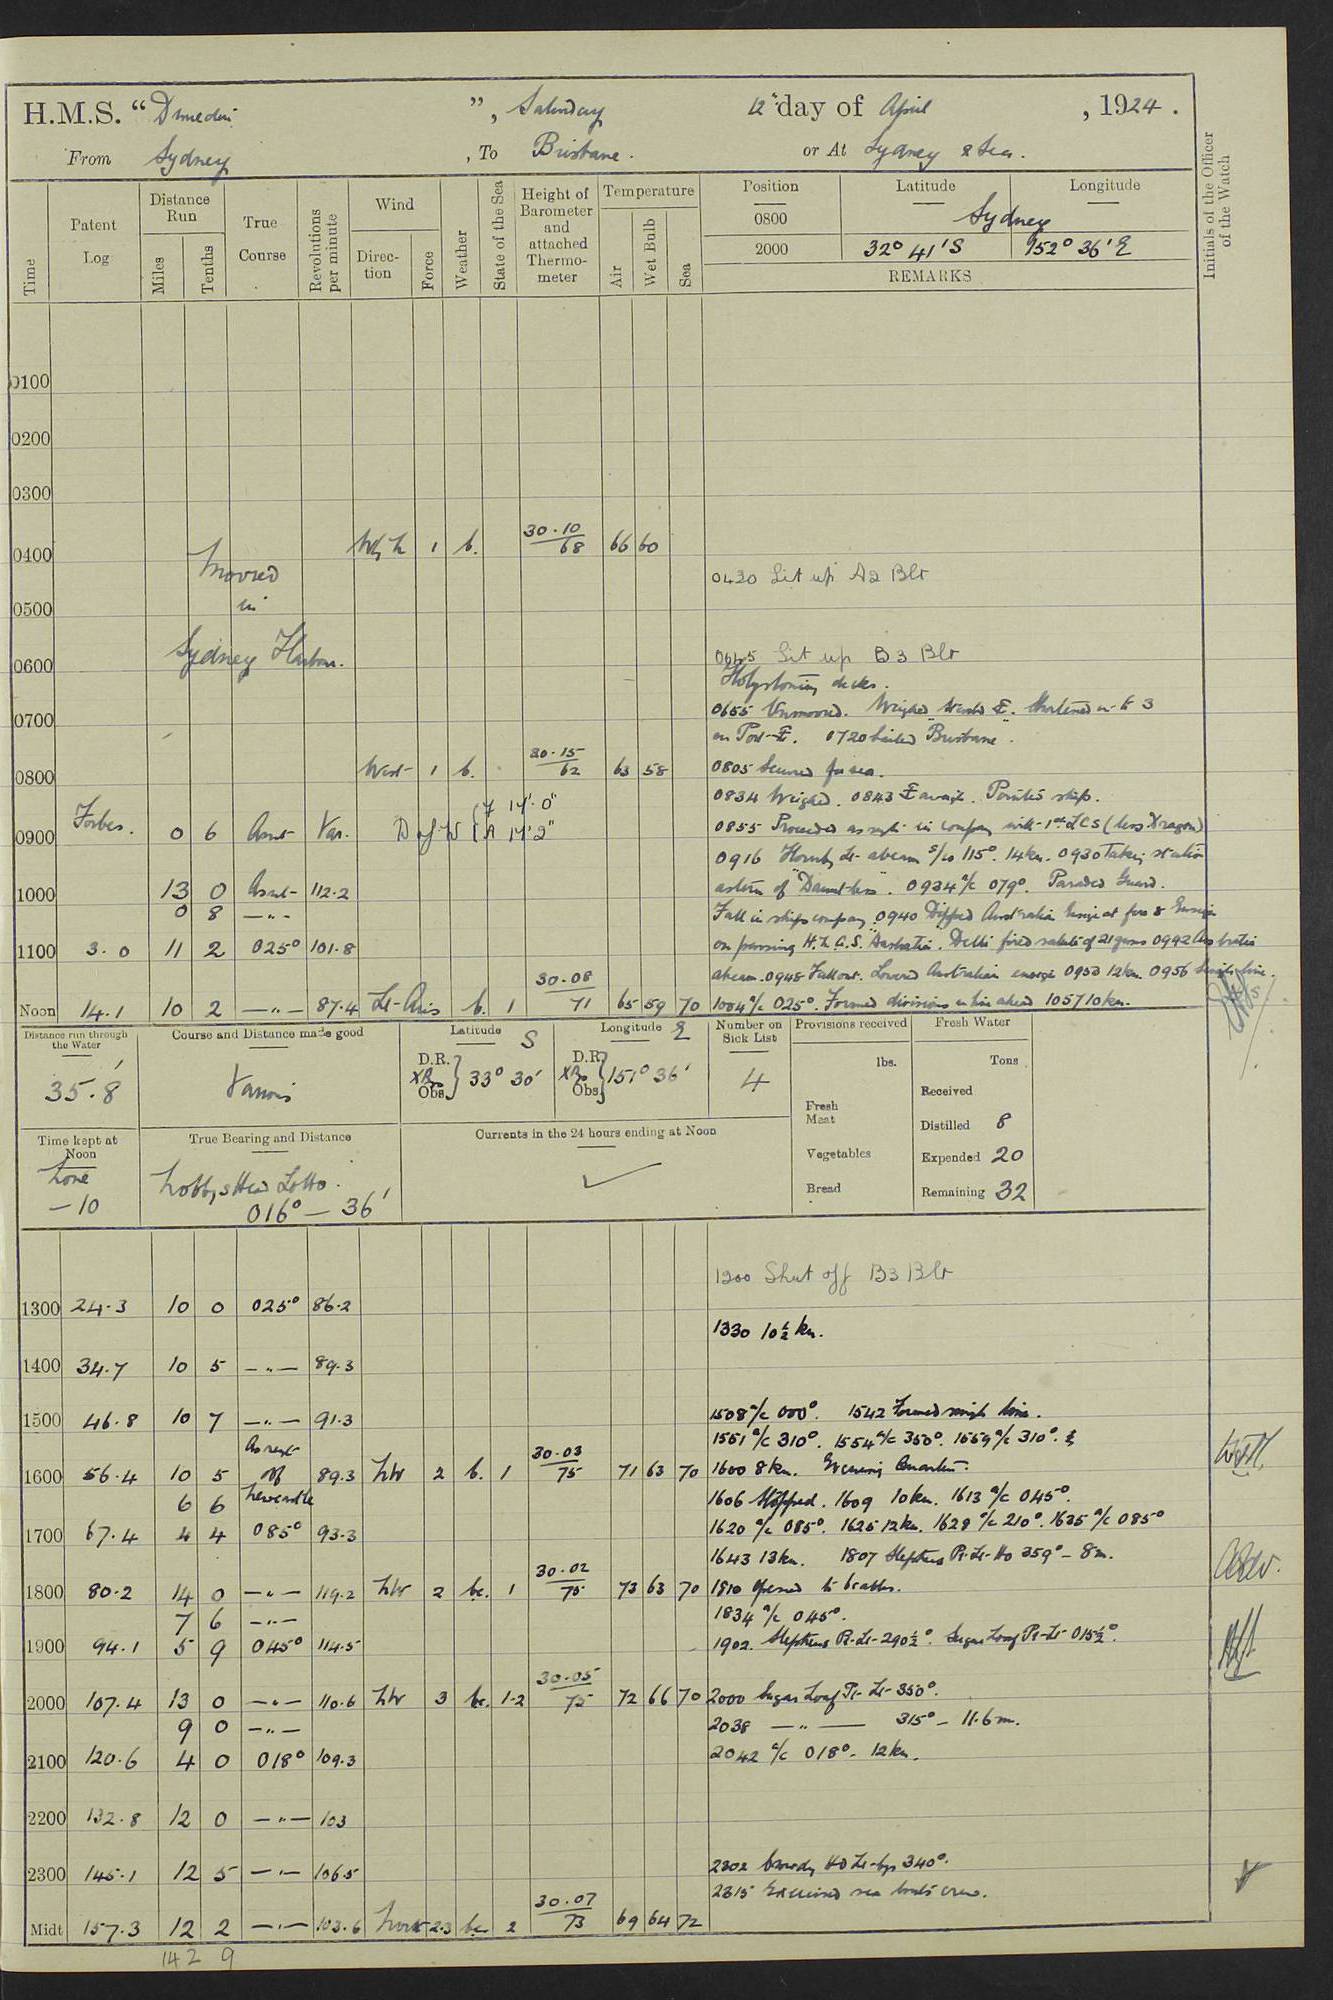 H.M.S. “Dunedin”, Saturday 12th day of April, 1924.
From Sydney, To Brisbane. or At Sydney & Sea.
Time Patent Log Distance Run Miles Tenths True Course Revolutions per minute Wind Direction Force Weather State of the Sea Height of Barometer and attached Thermometer Temperature Air Wet Bulb Sea
Position Latitude Longitude
0800 Sydney
2000 32° 41' S 152° 36' E
REMARKS
Initials of the Officer of the Watch
0100
0200
0300
0400 1 b. 30.10 68 66 60
Moored
0430 Lit up A2 Blr
in
0500
Sydney Harbour.
0600 0645 Lit up B3 Blr
Holystoning decks.
0655 Unmoored. Weighed Shortened in to 3
0700
on Port 0720 Sailed "Brisbane".
0800 West 1 b. 30.15 62 63 58 0805 Secured for sea.
0834 Weighed. 0843 aweigh. Pointed ship.
Forbes. D of W { F 14'.0" A 14'2"
0900 0 6 Asnt Var. 0855 Proceeded as reqt in company with 1st LCS (less Dragon)
0916 Hornby Lt abeam s/co 115°. 14 kn. 0930 Taking station
1000 13 0 Asnt 112.2 astern of "Dauntless". 0934 a/c 079°. Paraded Guard.
0 8 —"— Fall in ships company 0940 Dipped Australian Ensign at fore & Ensign
1100 3.0 11 2 025° 101.8 on passing H.M.A.S. "Australia". Delhi fired salute of 21 guns 0942 Australia
abeam. 0948 Fall out. Lowered Australian ensign 0953 12 kn. 0956 Single line.
Noon 14.1 10 2 —"— 87.4 Lt Airs b. 1 30.08 71 65 59 70 1004 a/c 025°. Formed divisions in line ahead 1057 10 kn.
Distance run through the Water Course and Distance made good Latitude S Longitude E Number on Sick List Provisions received Fresh Water
35.8' Various D.R. Obs. } 33° 30' D.R. Obs. } 151° 36' 4 lbs. Tons
Fresh Meat Received
Distilled 8
Time kept at Noon True Bearing and Distance Currents in the 24 hours ending at Noon Vegetables Expended 20
Zone —10 Norah Head 016° — 36' Bread Remaining 32
1200 Shut off B3 Blr
1300 24.3 10 0 025° 86.2
1330 10½ kn.
1400 34.7 10 5 —"— 89.3
1500 46.8 10 7 —"— 91.3 1508 a/c 000°. 1542 Formed single line.
1551 a/c 310°. 1554 a/c 350°. 1559 a/c 310°. &
1600 56.4 10 5 As reqt off Newcastle 89.3 NW 2 b. 1 30.03 75 71 63 70 1600 8 kn. Evening Quarters.
6 6 1606 Stopped. 1609 10 kn. 1613 a/c 045°.
1700 67.4 4 4 085° 93.3 1620 a/c 085°. 1625 12 kn. 1628 a/c 210°. 1635 a/c 085°
1643 13 kn. 1807 Stephens Pt. Lt. Ho 359° – 8 m.
1800 80.2 14 0 —"— 119.2 NW 2 bc. 1 30.02 75 73 63 70 1810 Opened to 6 cables.
7 6 —"— 1834 a/c 045°.
1900 94.1 5 9 045° 114.5 1902. Stephens Pt. Lt. 290½°. Sugar Loaf Pt. Lt. 015½°.
2000 107.4 13 0 —"— 110.6 NW 3 bc. 1-2 30.05 75 72 66 70 2000 Sugar Loaf Pt. Lt. 350°.
9 0 —"— 2038 —"— 315° – 11.6 m.
2100 120.6 4 0 018° 109.3 2042 a/c 018° – 12 kn.
2200 132.8 12 0 —"— 103
2300 145.1 12 5 —"— 106.5 2302 Crowdy Hd Lt. brg 340°.
2315 Exercised sea boats crew.
Midt 157.3 12 2 —"— 103.6 2.3 bc 2 30.07 73 69 64 72
142 9